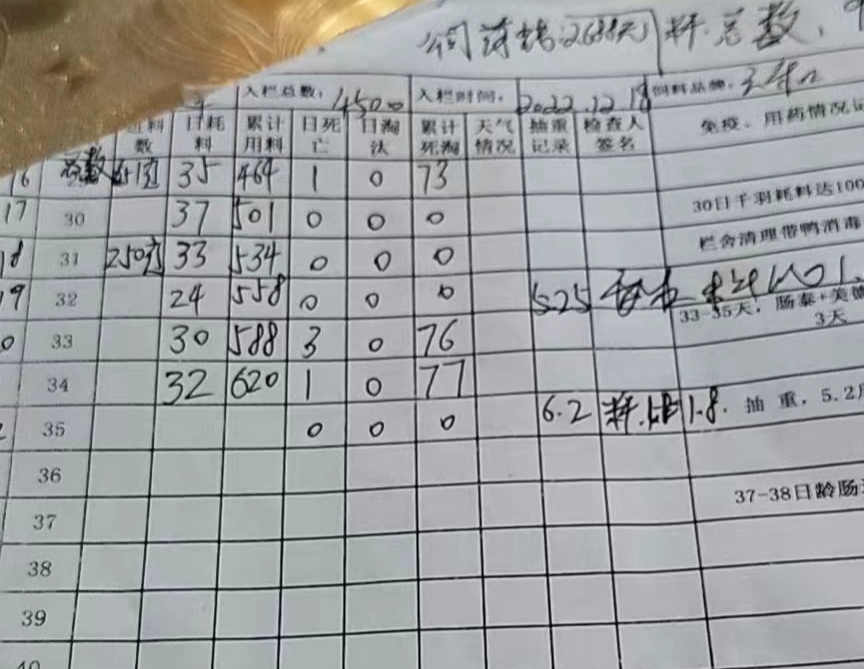 公司药钱:2688元 料.总数,
入栏总数: 4500 入栏时间: 2022.12.18 饲料品牌:
进料数 日耗料 累计用料 日死亡 日淘汰 累计死淘 天气情况 抽重记录 检查人签名 免疫、用药情况
16 总数 35 464 1 0 73
17 30 37 501 0 0 0 30日千羽耗料达100
18 31 250包 33 534 0 0 0 栏舍清理带鸭消毒
19 32 24 558 0 0 0 5.25
33-35天,肠泰+美
0 33 30 588 3 0 76 3天
34 32 620 1 0 77
35 0 0 0 6.2 料.比 1.8. 抽重,5.2
36
37 37-38日龄肠
38
39
40